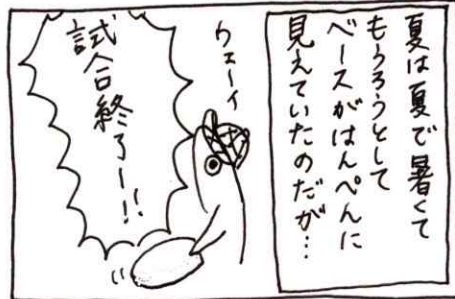 夏は夏で暑くて
もうろうとして
ベースがはんぺんに
見えていたのだが…
ウェーイ
試合終了ー!!